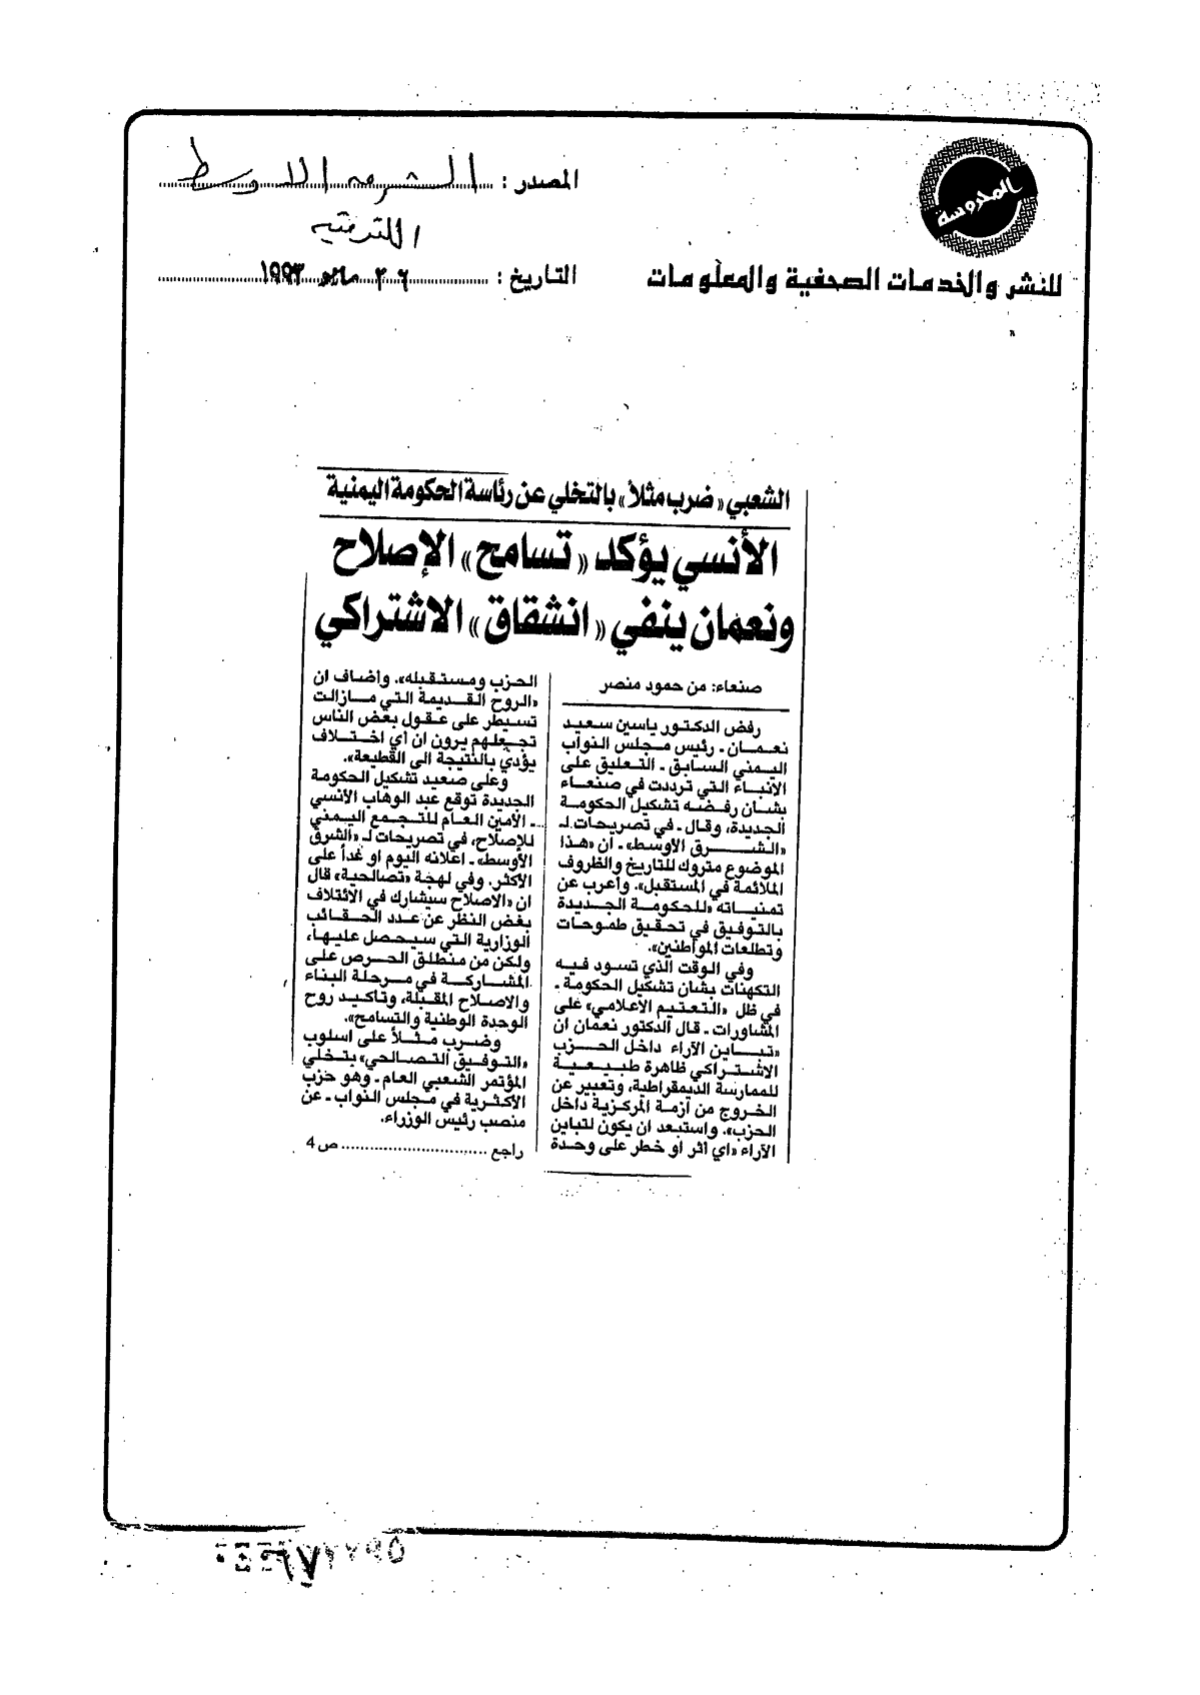 المحروسة
للنشر والخدمات الصحفية والمعلومات
المصدر : الشرق الاوسط
اللندنية
التاريخ : ٢٦ مايو ١٩٩٣
الشعبي «ضرب مثلاً» بالتخلي عن رئاسة الحكومة اليمنية
الأنسي يؤكد «تسامح» الإصلاح
ونعمان ينفي «انشقاق» الاشتراكي
صنعاء: من حمود منصر
رفض الدكتور ياسين سعيد
نعمان ـ رئيس مجلس النواب
اليمني السابق ـ التعليق على
الأنباء التي ترددت في صنعاء
بشان رفضه تشكيل الحكومة
الجديدة، وقال ـ في تصريحات لـ
«الشرق الأوسط» ـ ان «هذا
الموضوع متروك للتاريخ والظروف
الملائمة في المستقبل». وأعرب عن
تمنياته «للحكومة الجديدة
بالتوفيق في تحقيق طموحات
وتطلعات المواطنين».
وفي الوقت الذي تسود فيه
التكهنات بشان تشكيل الحكومة ـ
في ظل «التعتيم الاعلامي» على
المشاورات ـ قال الدكتور نعمان ان
«تباين الآراء داخل الحزب
الاشتراكي ظاهرة طبيعية
للممارسة الديمقراطية، وتعبير عن
الخروج من أزمة المركزية داخل
الحزب». واستبعد ان يكون لتباين
الآراء «اي أثر أو خطر على وحدة
الحزب ومستقبله». وأضاف ان
«الروح القديمة التي مازالت
تسيطر على عقول بعض الناس
تجعلهم يرون ان أي اختلاف
يؤدي بالنتيجة الى القطيعة».
وعلى صعيد تشكيل الحكومة
الجديدة توقع عبد الوهاب الأنسي
ـ الأمين العام للتجمع اليمني
للإصلاح، في تصريحات لـ «الشرق
الأوسط» ـ اعلانه اليوم او غداً على
الأكثر. وفي لهجة «تصالحية» قال
ان «الاصلاح سيشارك في الائتلاف
بغض النظر عن عدد الحقائب
الوزارية التي سيحصل عليها،
ولكن من منطلق الحرص على
المشاركة في مرحلة البناء
والاصلاح المقبلة، وتأكيد روح
الوحدة الوطنية والتسامح».
وضرب مثلاً على اسلوب
«التوفيق التصالحي» بتخلي
المؤتمر الشعبي العام ـ وهو حزب
الأكثرية في مجلس النواب ـ عن
منصب رئيس الوزراء.
راجع ............................ ص 4